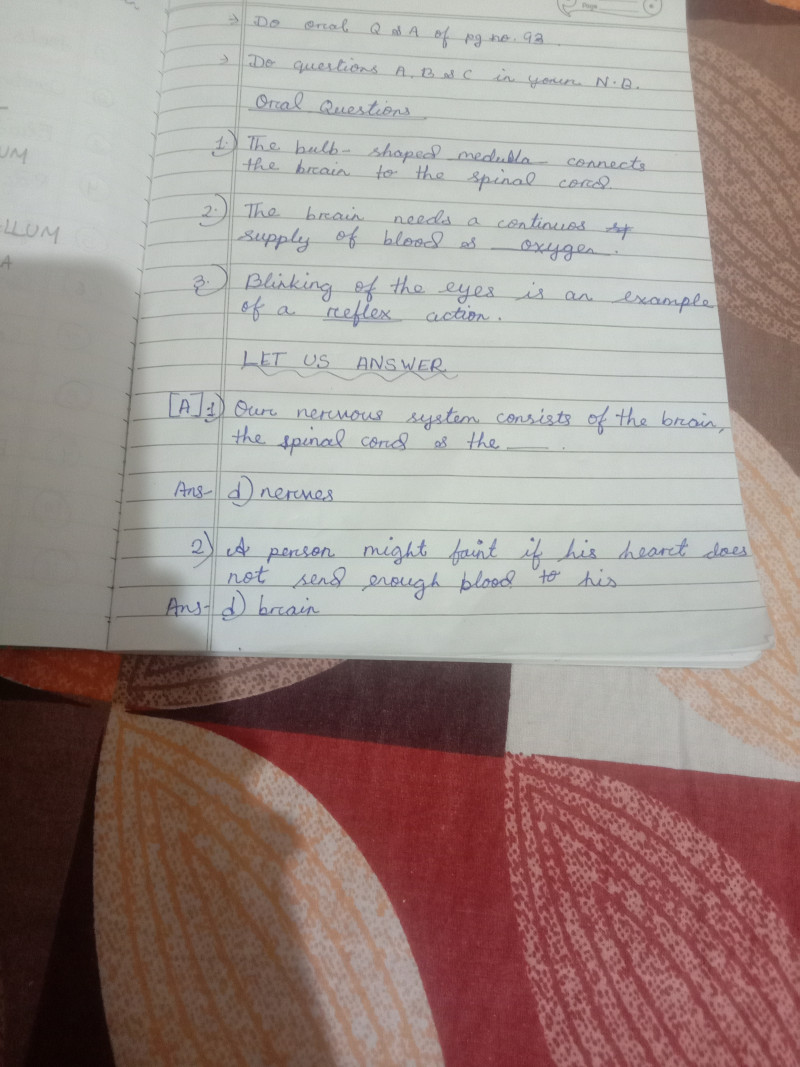 Page
→ Do oral Q & A of pg no. 93.
→ Do questions A, B & C in your N.B.
Oral Questions
1.) The bulb-shaped medulla connects
the brain to the spinal cord.
2.) The brain needs a continuos
supply of blood & oxygen.
3.) Blinking of the eyes is an example
of a reflex action.
LET US ANSWER
[A] 1) Our nervous system consists of the brain,
the spinal cord & the ___.
Ans- d) nerves
2) A person might faint if his heart does
not send enough blood to his
Ans- d) brain
UM
LLUM
A